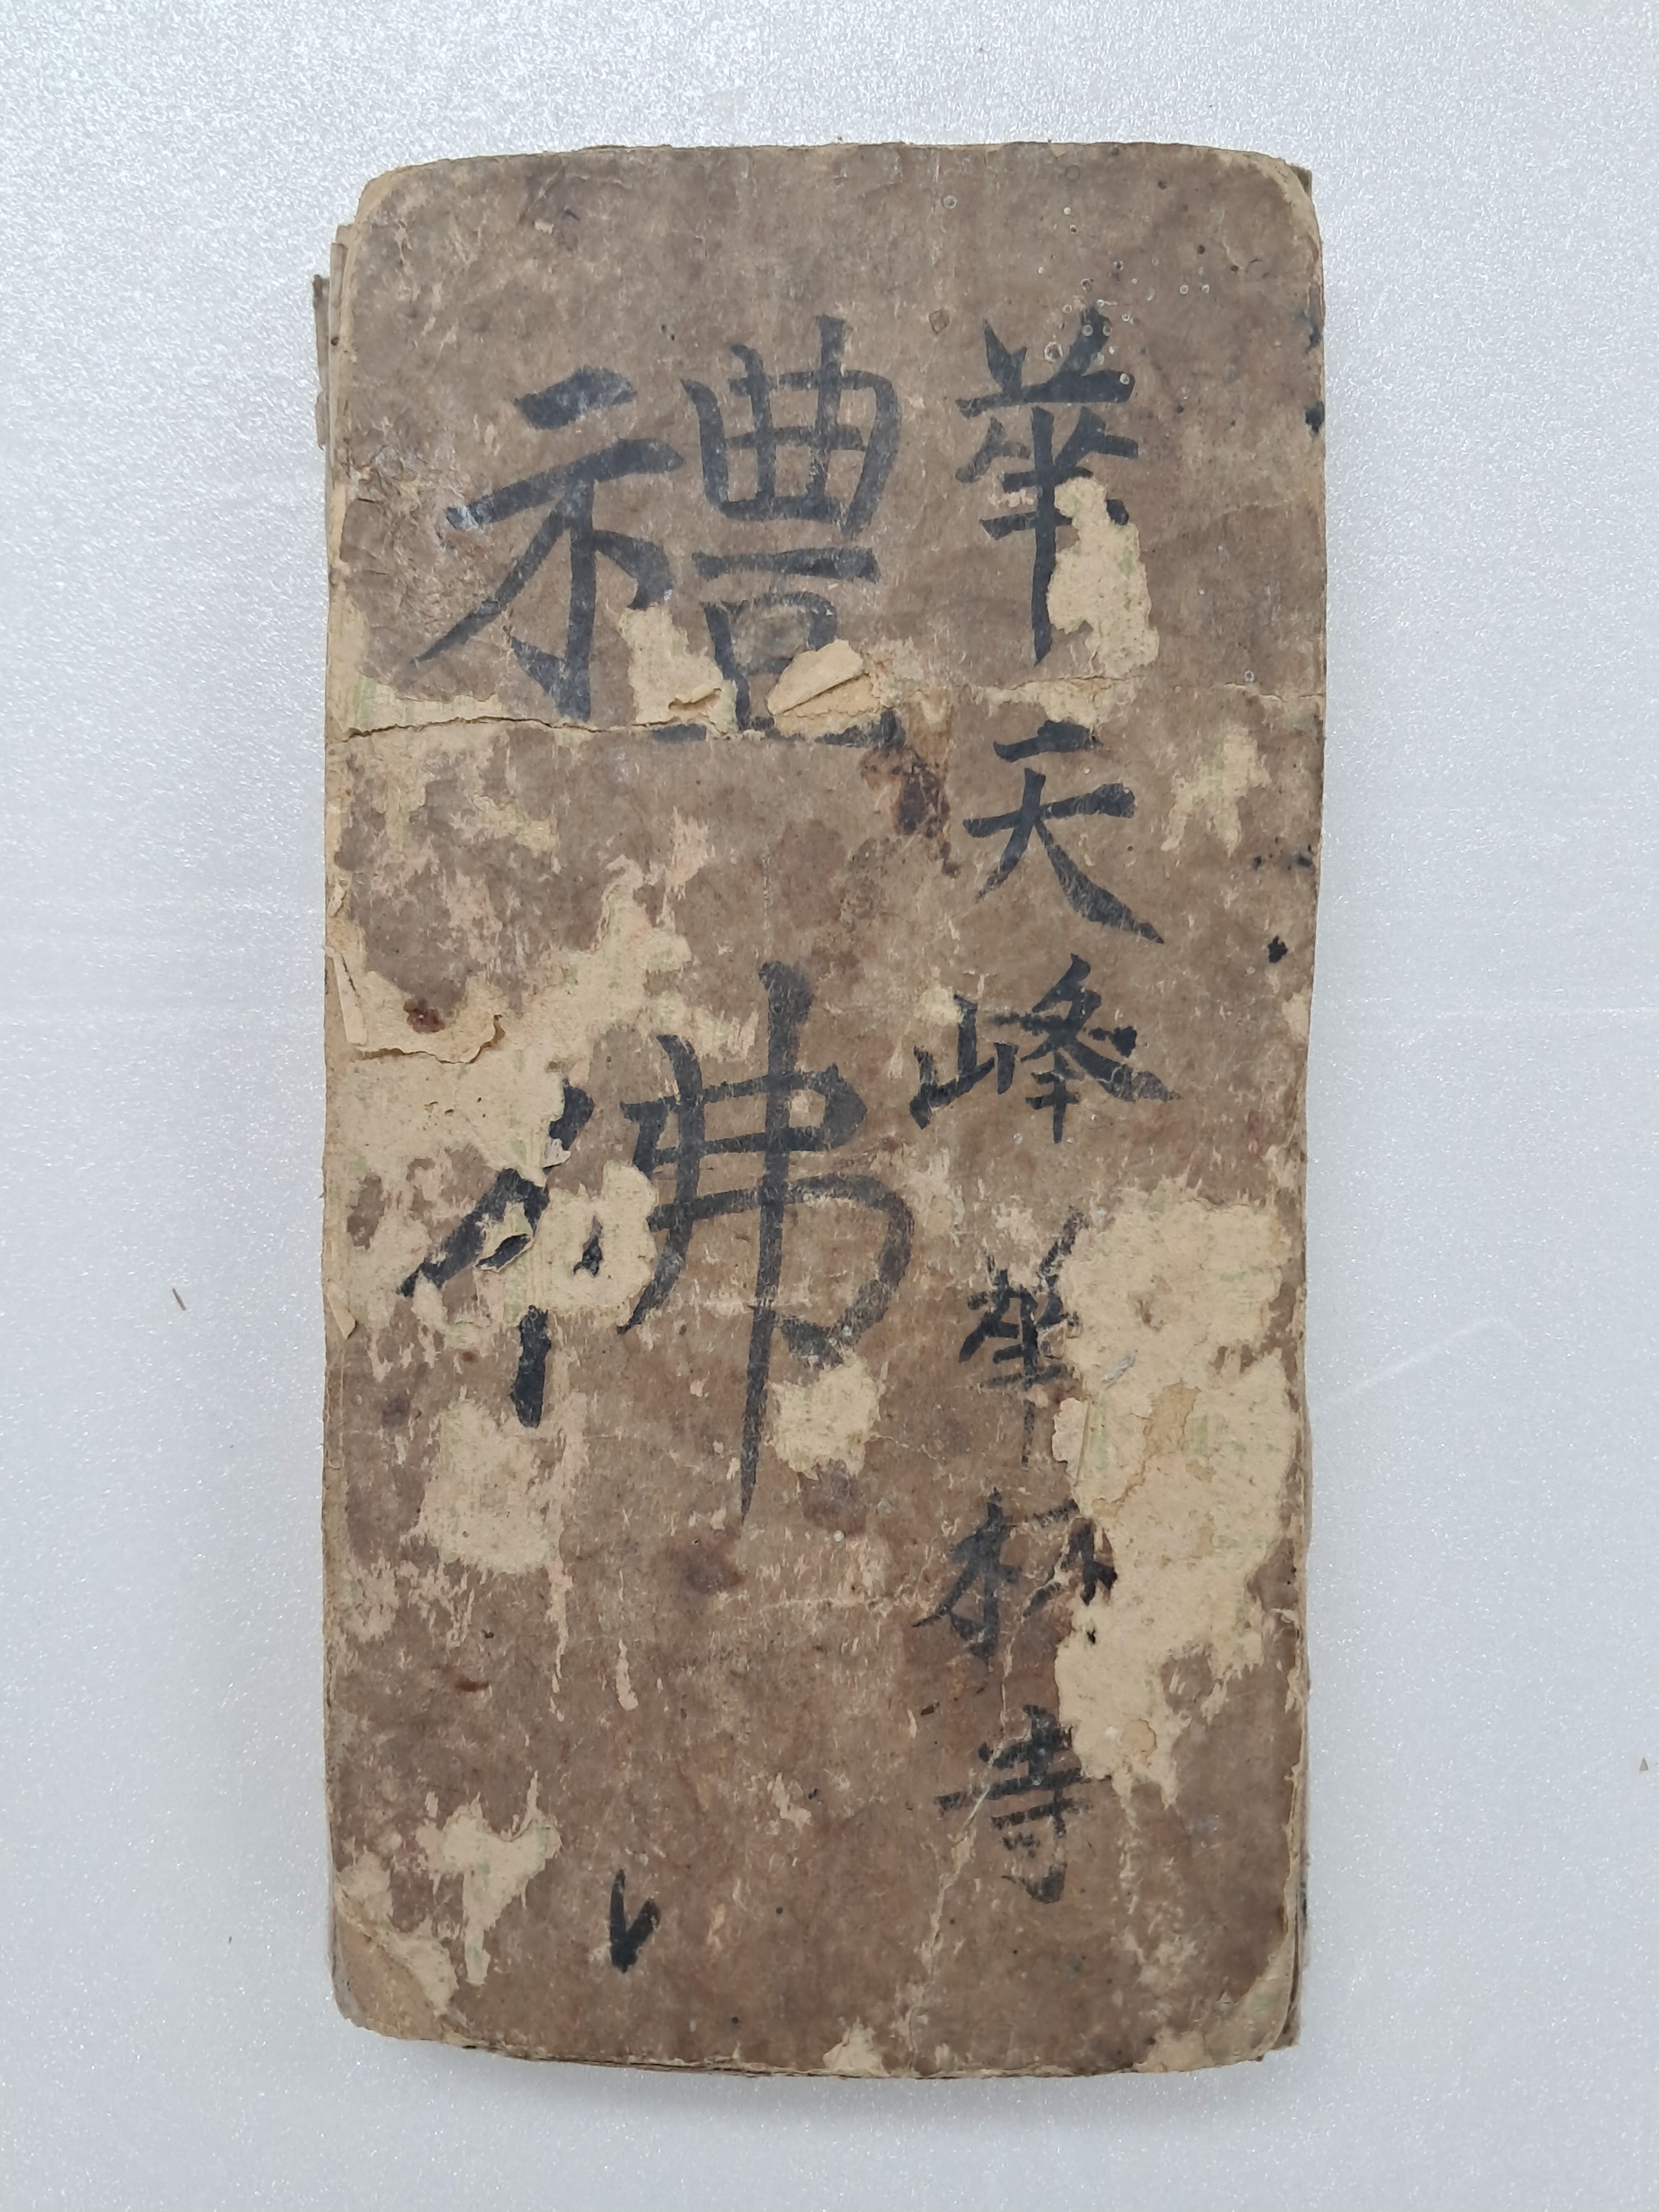 華天峰華林寺
禮佛